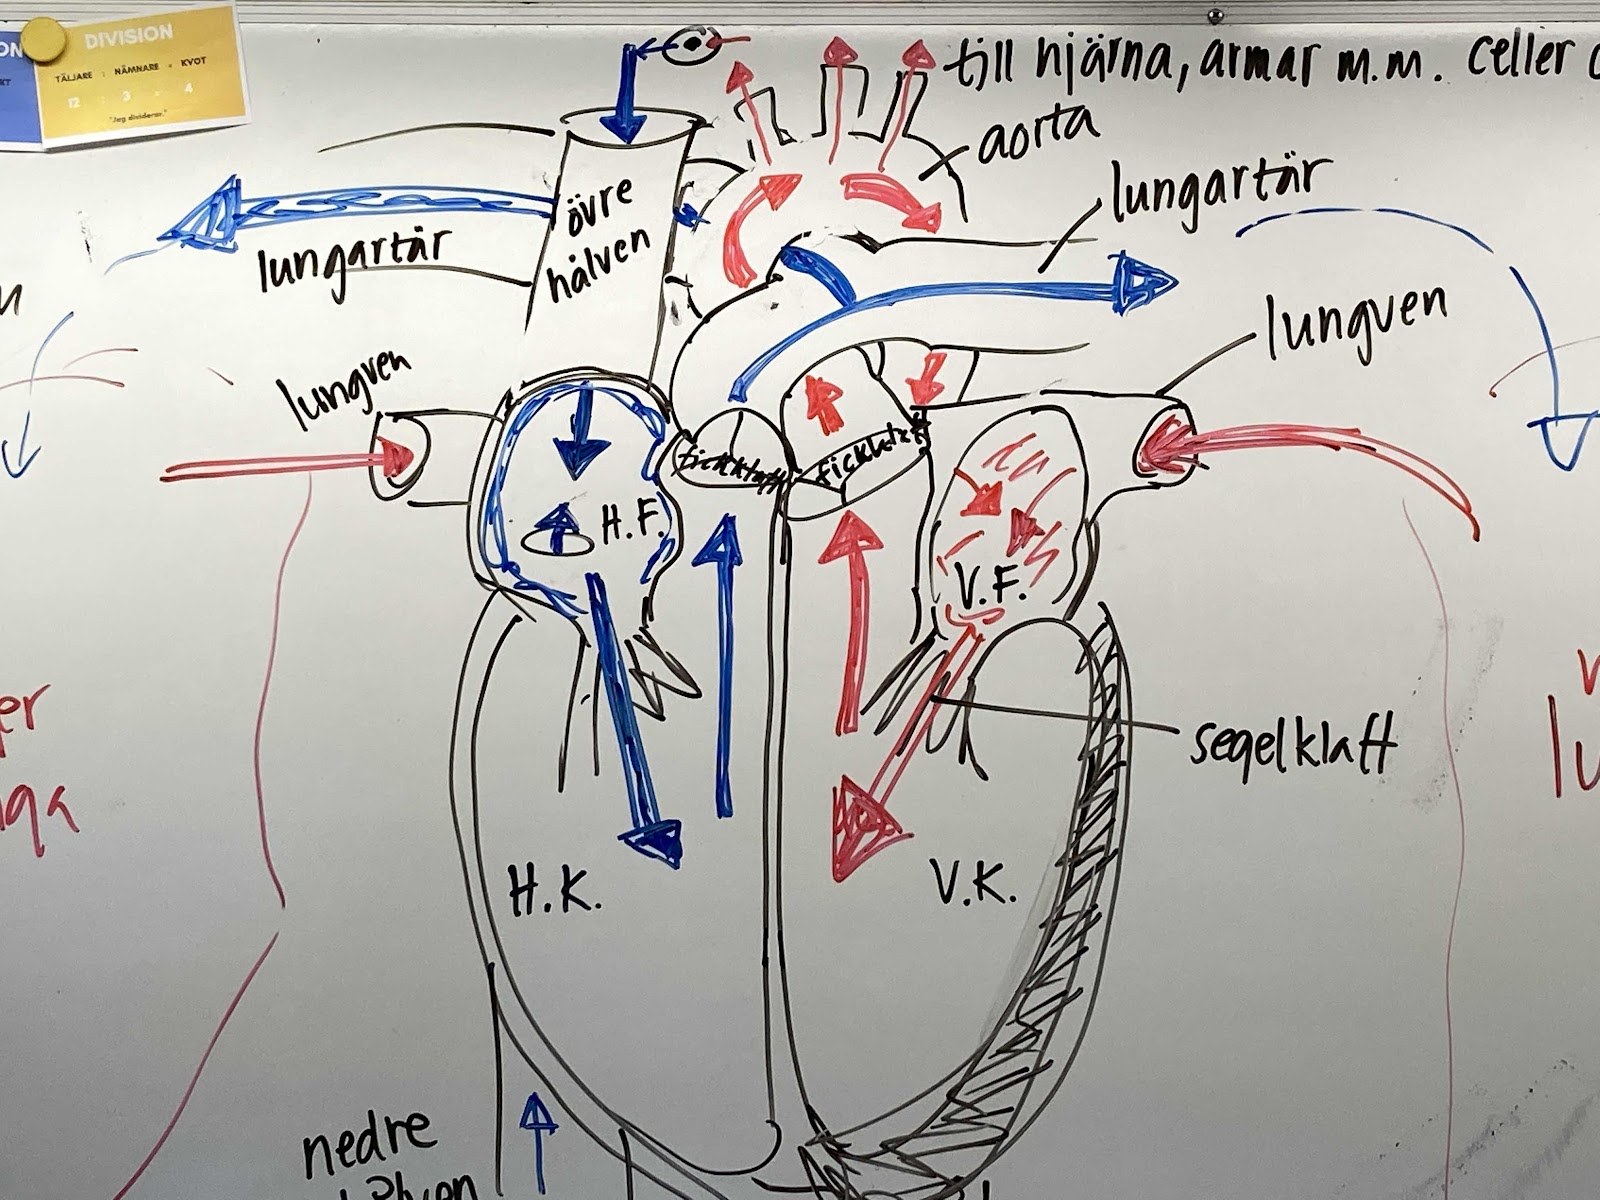 DIVISION
TÄLJARE : NÄMNARE = KVOT
12 : 3 = 4
"Jag dividerar."
till hjärna, armar m.m. celler
aorta
lungartär
övre
hålven
lungartär
lungven
lungven
fickklaff
fickklaff
H.F.
V.F.
segelklaff
H.K.
V.K.
nedre
hålven